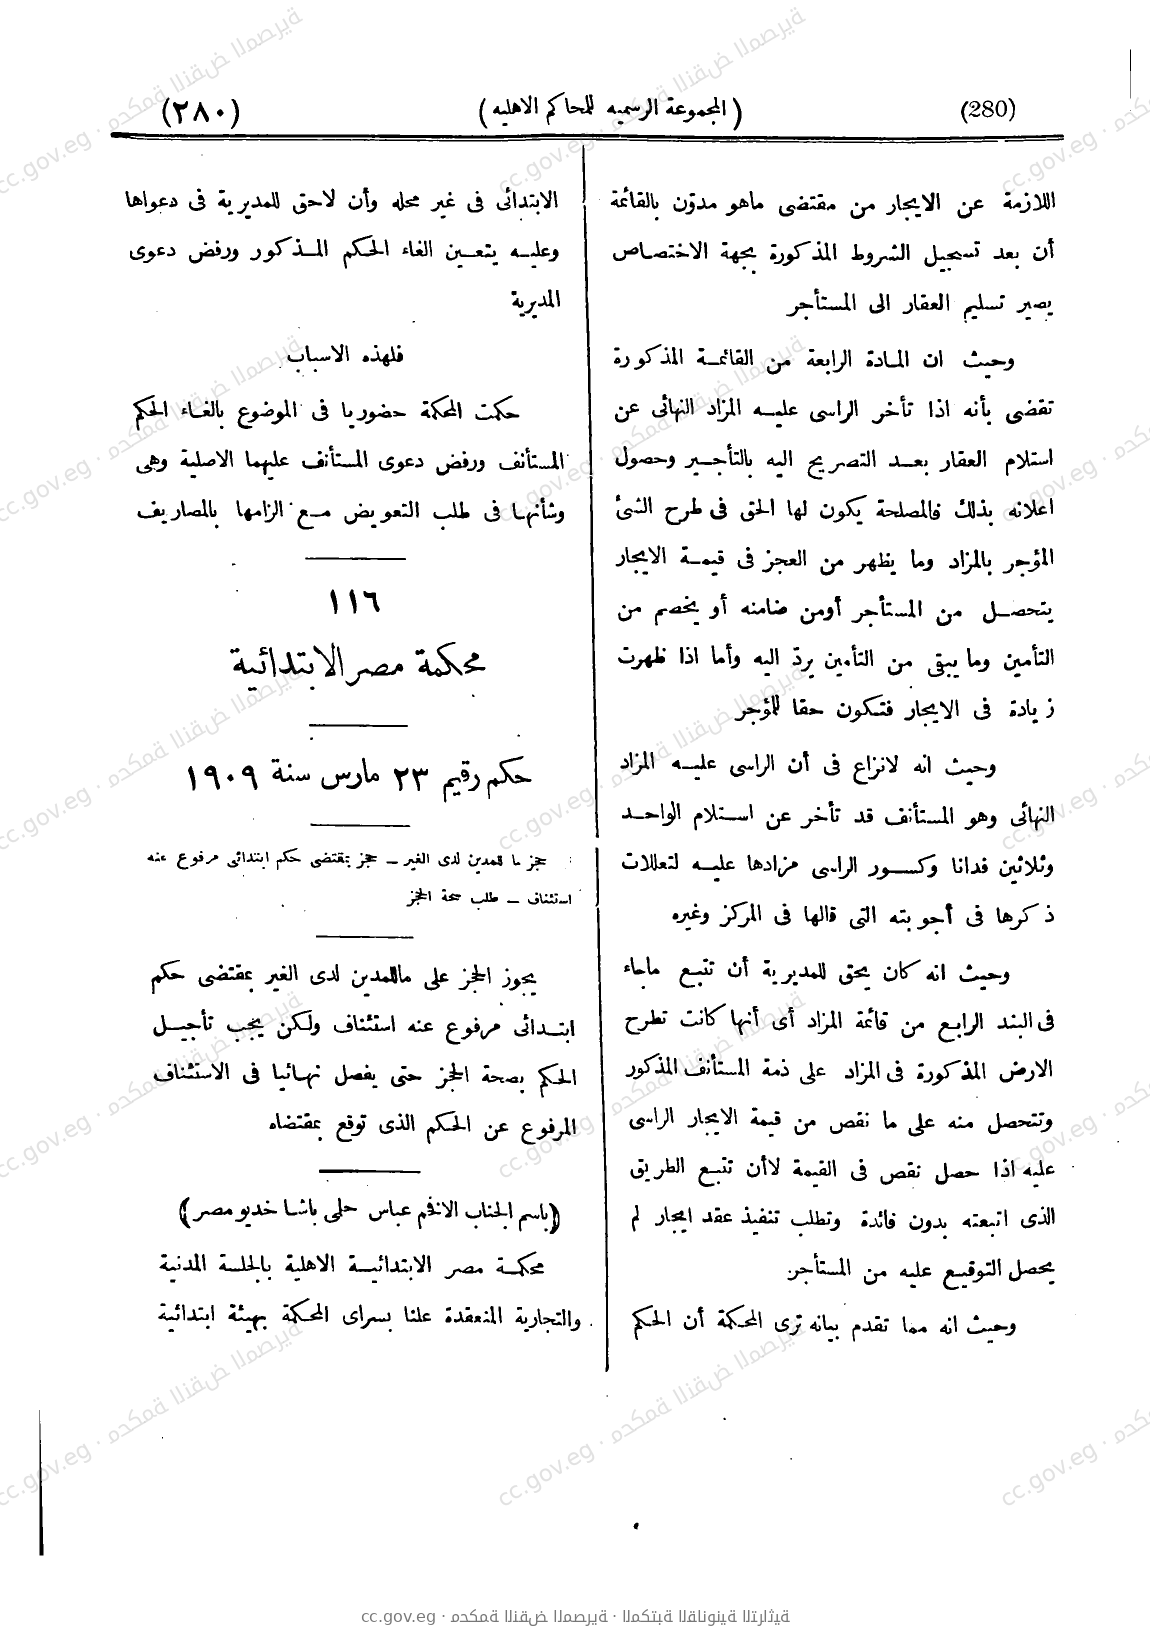 (280) (المجموعة الرسميه للمحاكم الاهليه) (٢٨٠)
اللازمة عن الايجار من مقتضى ماهو مدوّن بالقائمة
أن بعد تسجيل الشروط المذكورة بجهة الاختصاص
يصير تسليم العقار الى المستأجر
وحيث ان المادة الرابعة من القائمة المذكورة
تقضى بأنه اذا تأخر الراسى عليه المزاد النهائى عن
استلام العقار بعد التصريح اليه بالتأجير وحصول
اعلانه بذلك فالمصلحة يكون لها الحق فى طرح الشئ
المؤجر بالمزاد وما يظهر من العجز فى قيمة الايجار
يتحصل من المستأجر أومن ضامنه أو يخصم من
التأمين وما يبقى من التأمين يردّ اليه وأما اذا ظهرت
زيادة فى الايجار فتكون حقا للمؤجر
وحيث انه لانزاع فى أن الراسى عليه المزاد
النهائى وهو المستأنف قد تأخر عن استلام الواحد
وثلاثين فدانا وكسور الراسى مزادها عليه لتعللات
ذكرها فى أجوبته التى قالها فى المركز وغيره
وحيث انه كان يحق للمديرية أن تتبع ماجاء
فى البند الرابع من قائمة المزاد أى أنها كانت تطرح
الارض المذكورة فى المزاد على ذمة المستأنف المذكور
وتتحصل منه على ما نقص من قيمة الايجار الراسى
عليه اذا حصل نقص فى القيمة لاأن تتبع الطريق
الذى اتبعته بدون فائدة وتطلب تنفيذ عقد ايجار لم
يحصل التوقيع عليه من المستأجر
وحيث انه مما تقدم بيانه ترى المحكمة أن الحكم
الابتدائى فى غير محله وأن لاحق للمديرية فى دعواها
وعليه يتعين الغاء الحكم المذكور ورفض دعوى
المديرية
فلهذه الاسباب
حكمت المحكمة حضوريا فى الموضوع بالغاء الحكم
المستأنف ورفض دعوى المستأنف عليهما الاصلية وهى
وشأنها فى طلب التعويض مع الزامها بالمصاريف
١١٦
محكمة مصر الابتدائية
حكم رقيم ٢٣ مارس سنة ١٩٠٩
حجز ما للمدين لدى الغير – حجز بمقتضى حكم ابتدائى مرفوع عنه
استئناف – طلب صحة الحجز
يجوز الحجز على ماللمدين لدى الغير بمقتضى حكم
ابتدائى مرفوع عنه استئناف ولكن يجب تأجيل
الحكم بصحة الحجز حتى يفصل نهائيا فى الاستئناف
المرفوع عن الحكم الذى توقع بمقتضاه
(باسم الجناب الافخم عباس حلمى باشا خديو مصر)
محكمة مصر الابتدائية الاهلية بالجلسة المدنية
والتجارية المنعقدة علنا بسراى المحكمة بهيئة ابتدائية
cc.gov.eg · محكمة النقض المصرية · المكتبة القانونية التراثية